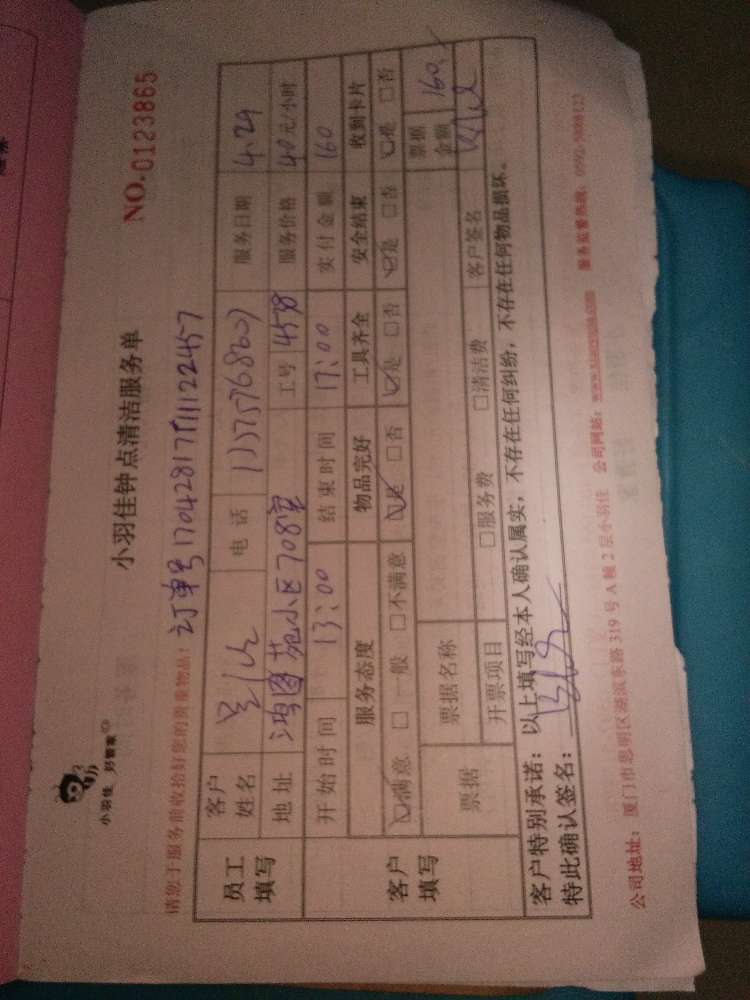 小羽佳 好管家
小羽佳钟点清洁服务单
NO.0123865
请您于服务前收拾好您的贵重物品!
订单号17042817111122457
员工填写
客户姓名 电话 服务日期 4.29
地址 鸿图苑小区708室 工号 4578 服务价格 40元/小时
开始时间 13:00 结束时间 17:00 实付金额 160
客户填写
服务态度 物品完好 工具齐全 安全结束 收到卡片
☑满意 □一般 □不满意 ☑是 □否 ☑是 □否 ☑是 □否 ☑是 □否
票据 票据名称 票据金额 160.
开票项目 □服务费 □清洁费 客户签名
客户特别承诺:以上填写经本人确认属实,不存在任何纠纷,不存在任何物品损坏。
特此确认签名:
公司地址:厦门市思明区湖滨东路319号A幢2层小羽佳 公司网站: 服务监督热线: